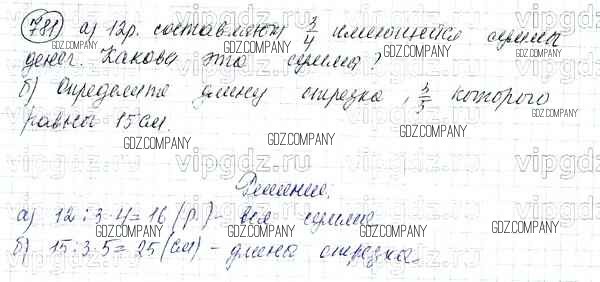 781) а) 12р. составляют 3/4 имеющейся суммы
денег. Какова эта сумма?
б) Определите длину отрезка, 3/5 которого
равны 15 см.
Решение.
а) 12:3·4=16 (р.) - вся сумма
б) 15:3·5=25 (см) - длина отрезка.
GDZ.COMPANY
vipgdz.ru